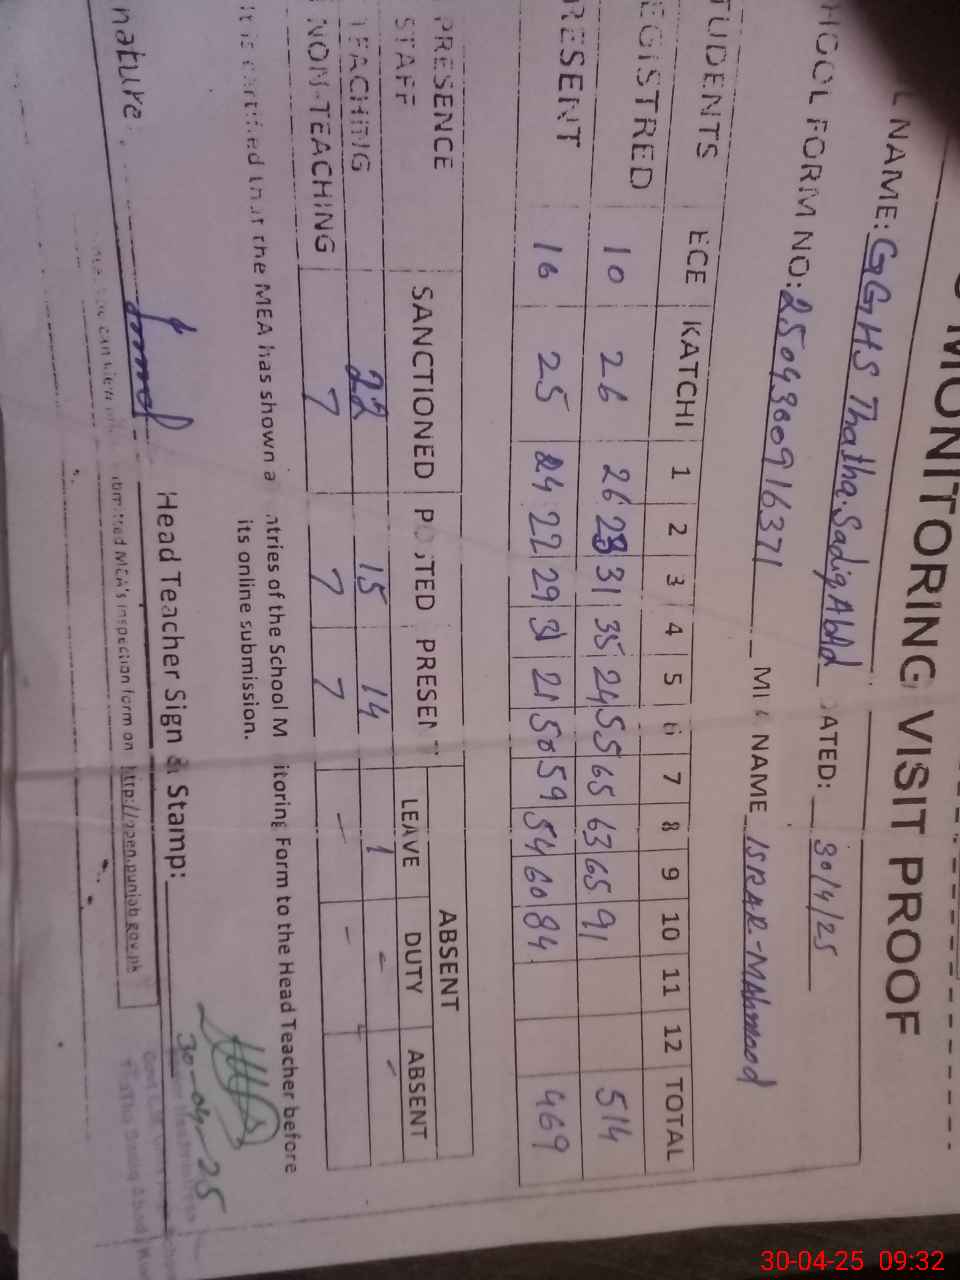 MONITORING VISIT PROOF
L NAME: GGHS Thatha Sadiq Abad DATED: 30/4/25
HOOL FORM NO: 2504360916371 MEA NAME ISRAR-MAHMOOD
TUDENTS ECE KATCHI 1 2 3 4 5 6 7 8 9 10 11 12 TOTAL
EGISTRED 10 26 26 28 31 35 24 55 65 63 65 91 514
RESENT 10 25 24 22 29 31 21 50 59 54 60 84 469
PRESENCE SANCTIONED POSTED PRESENT ABSENT
STAFF LEAVE DUTY ABSENT
TEACHING 22 15 14 1 - -
NON-TEACHING 7 7 7 - -
It is certified that the MEA has shown a ntries of the School M itoring Form to the Head Teacher before
its online submission.
nature Head Teacher Sign & Stamp:
30-04-25
You can view submitted MEA's inspection form on http://open.punjab.gov.pk
30-04-25 09:32